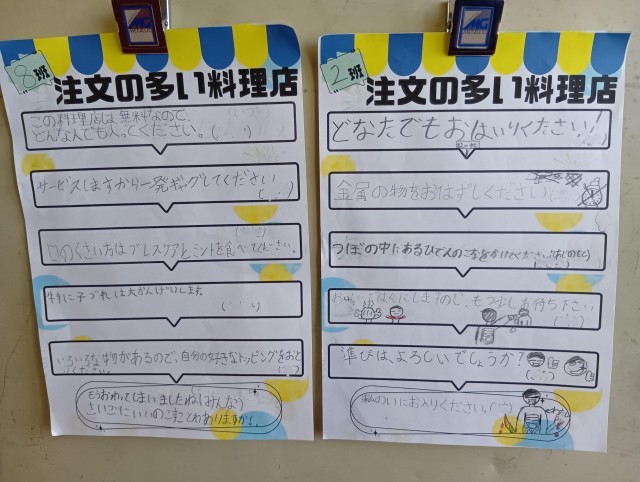 8班
注文の多い料理店
この料理店は無料なので、
どんな人でも入ってください。(
サービスしますから一発ギャグしてください
口のくさい方はブレスケアとミントを食べてください。
特に子づれは大かんげいします。
いろいろな物があるので、自分の好きなトッピングをおと
ください。
もうおわってしまいましたね(みんな)
さいごに
ありますか!
2班
注文の多い料理店
どなたでもおはいりください!
金属の物をおはずしください
つぼの中にある
します もう少しお待ち下さい
準びは、よろしいでしょうか?
私のいにお入りください。